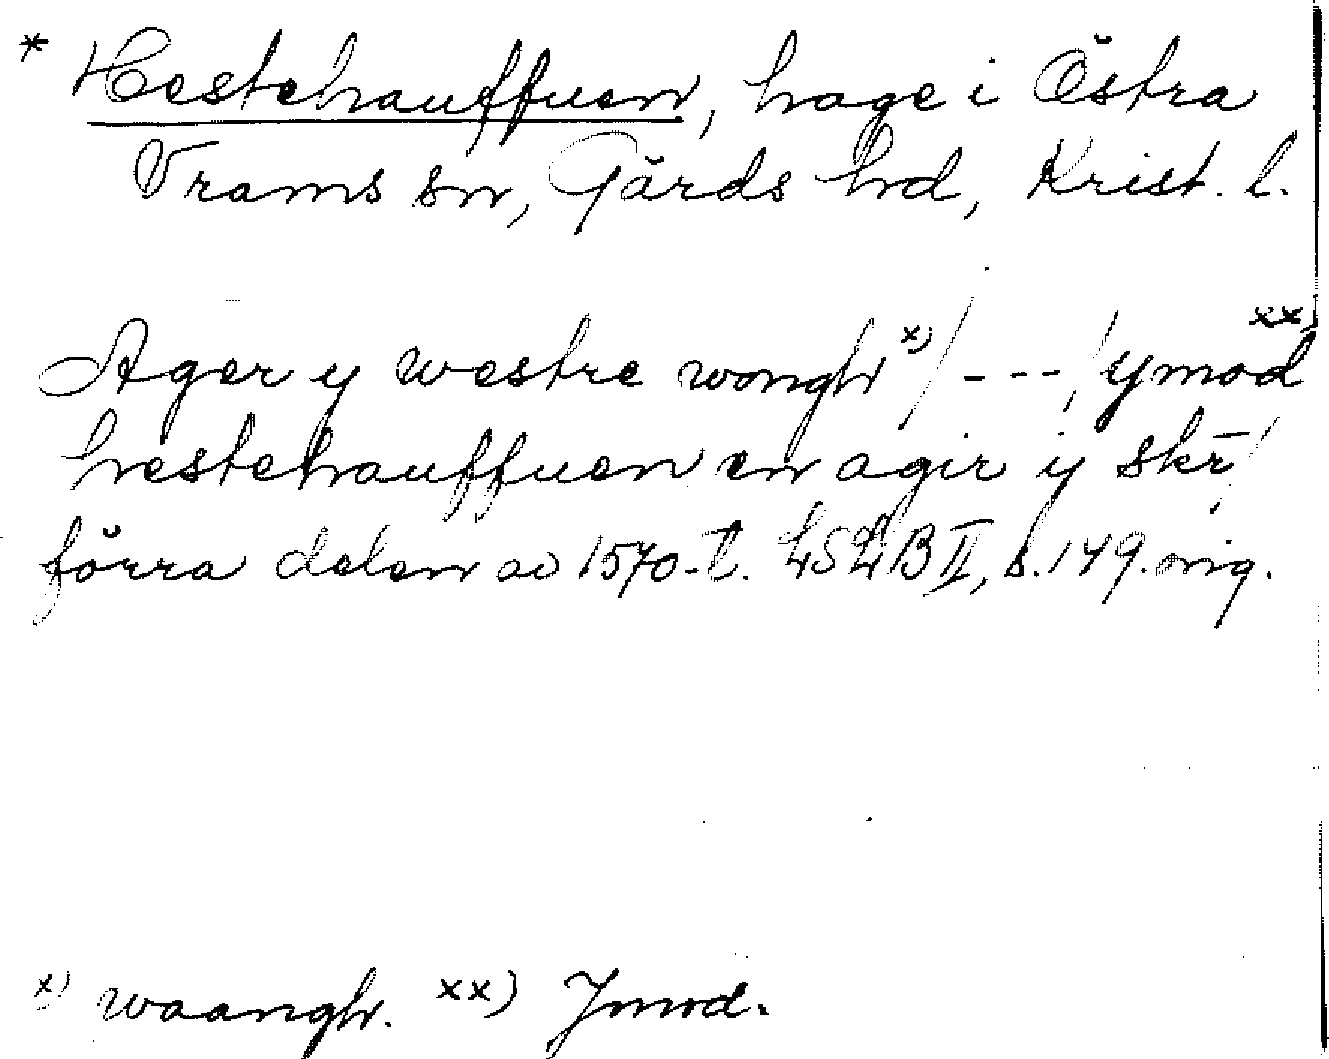 * Hestehauffuen, hage i Östra
Vrams sn, Gärds hd, Krist. l.
Ager y westre wongh x) / - - -, / ymod xx)
hestehauffuen en agir ij skr̄, /
förra delen av 1570-t. LSLB II, s. 149. orig.
x) waangh. xx) Jmod.